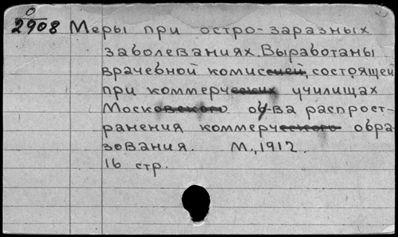 0
2908 Меры при остро-заразных
заболеваниях. Выработаны
врачебной комиссией, состоящей
при коммерческих училищах
Московского об-ва распрост-
ранения коммерческого обра-
зования. М., 1912.
16 стр.